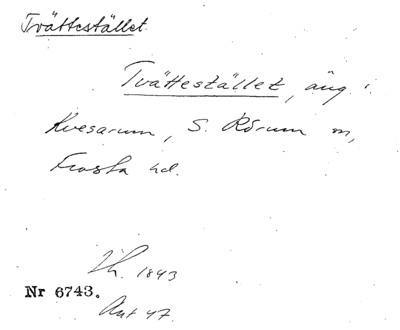 Tvättestället.
Tvättestället, äng i
Kvesarum, S. Rörum sn,
Frosta hd.
1843
Nr 6743.
Ant 47